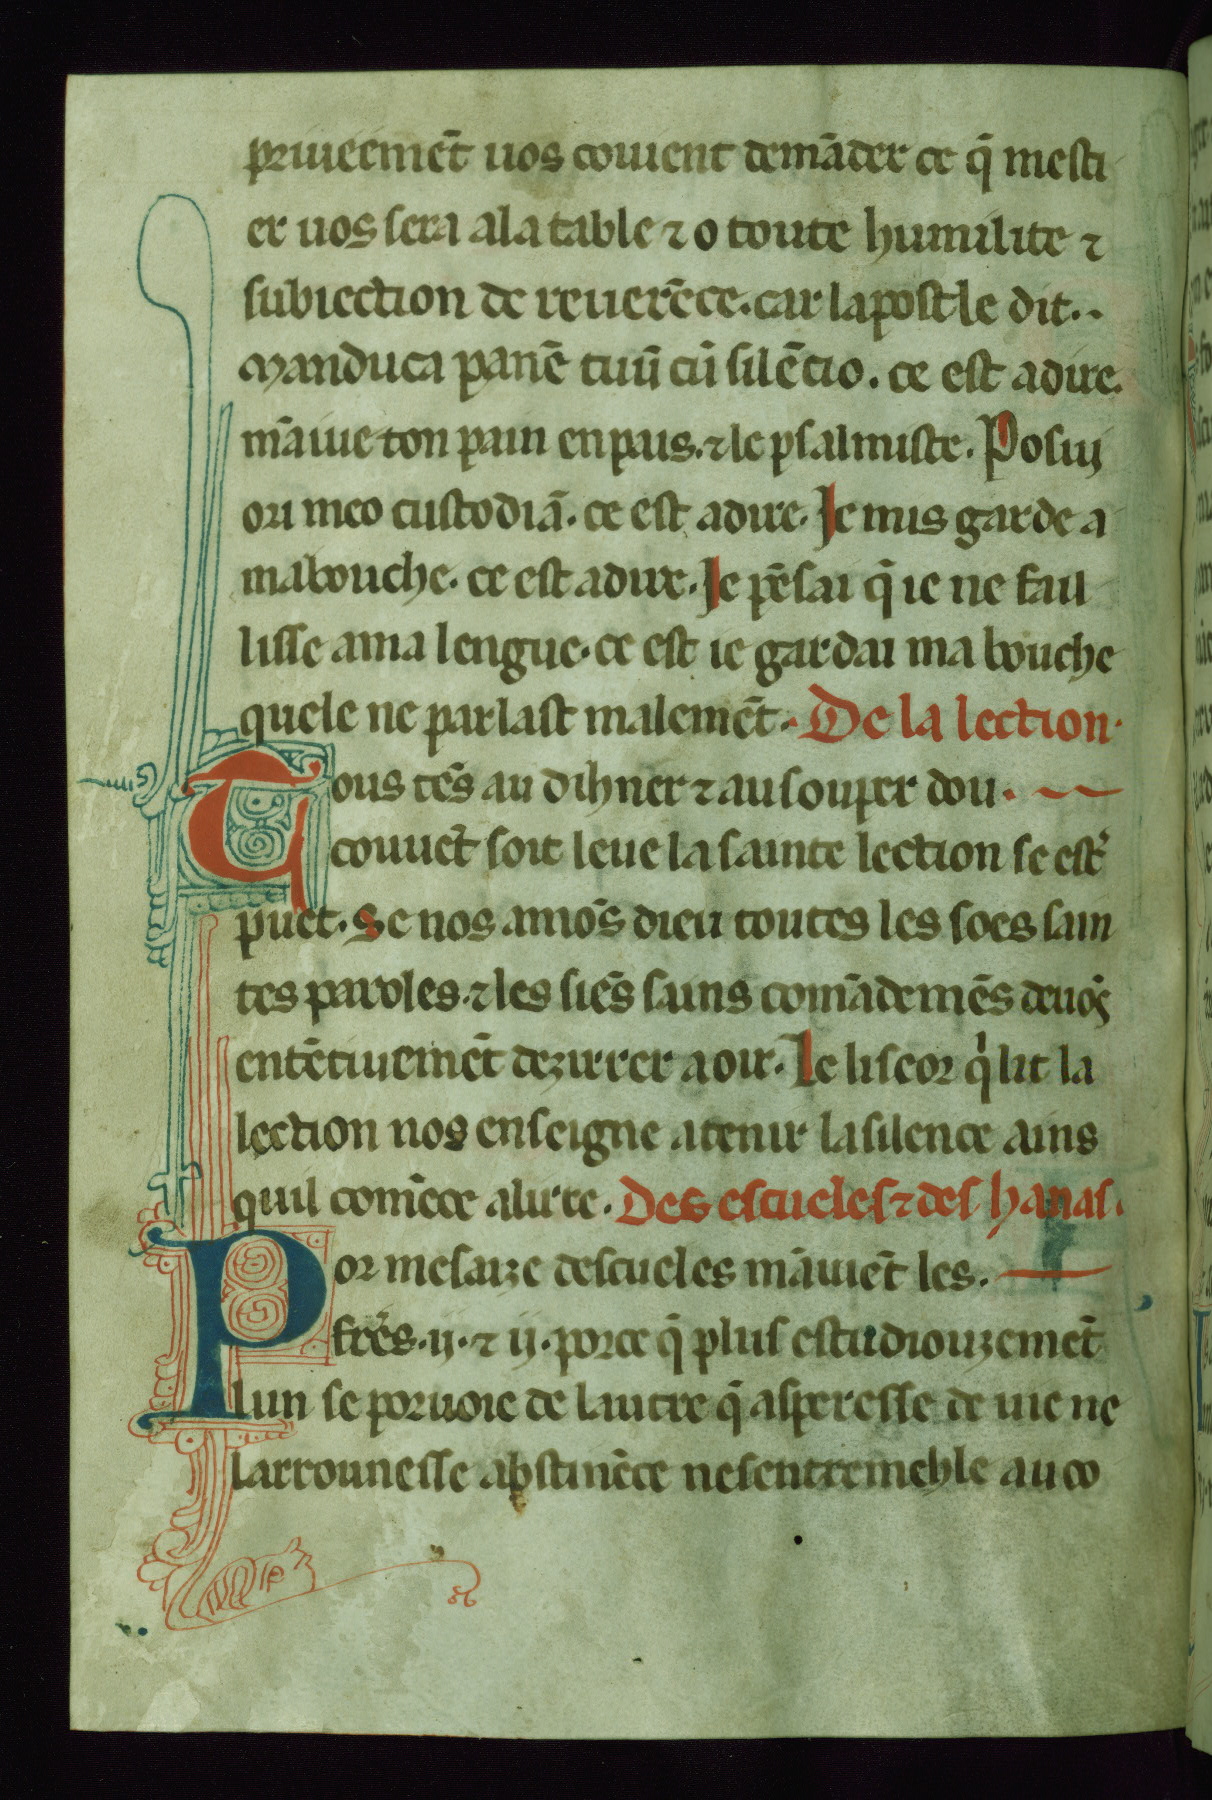 priueemēt uos couient demāder ce q̄ mesti
er uos sera a la table ⁊ o toute humilite ⁊
subiection de reuerēce. car lapostle dit..
Manduca panē tuū cū silēcio. ce est a dire.
māiue ton pain en pais. ⁊ le psalmiste. Posuy
ori meo custodiā. ce est a dire. Je mis garde a
ma bouche. ce est a dire. Je pēsai q̄ ie ne fail
lisse a ma lengue. ce est ie gardai ma bouche
quele ne parlast malemēt. De la lection.
Tous tēs au dihner ⁊ au souper dou.
couuēt soit leue la sainte lection se estˀ
puet. Se nos amōs dieu toutes les soes sain
tes paroles. ⁊ les siēs sains comādemēs deuōs
entētiuemēt dezirrer a oir. Le liseor qͥ lit la
lection nos enseigne a tenir la silence ains
quil comēce a lirre. Des escueles ⁊ des hanas.
Por mesaize descueles māiuēt les.
frēs. ij. ⁊ ij. por ce q̄ plus estudiouzemēt
lun se poruoie de lautre q̄ asperesse de uie ne
larrounesse abstinēce ne sentremehle au co